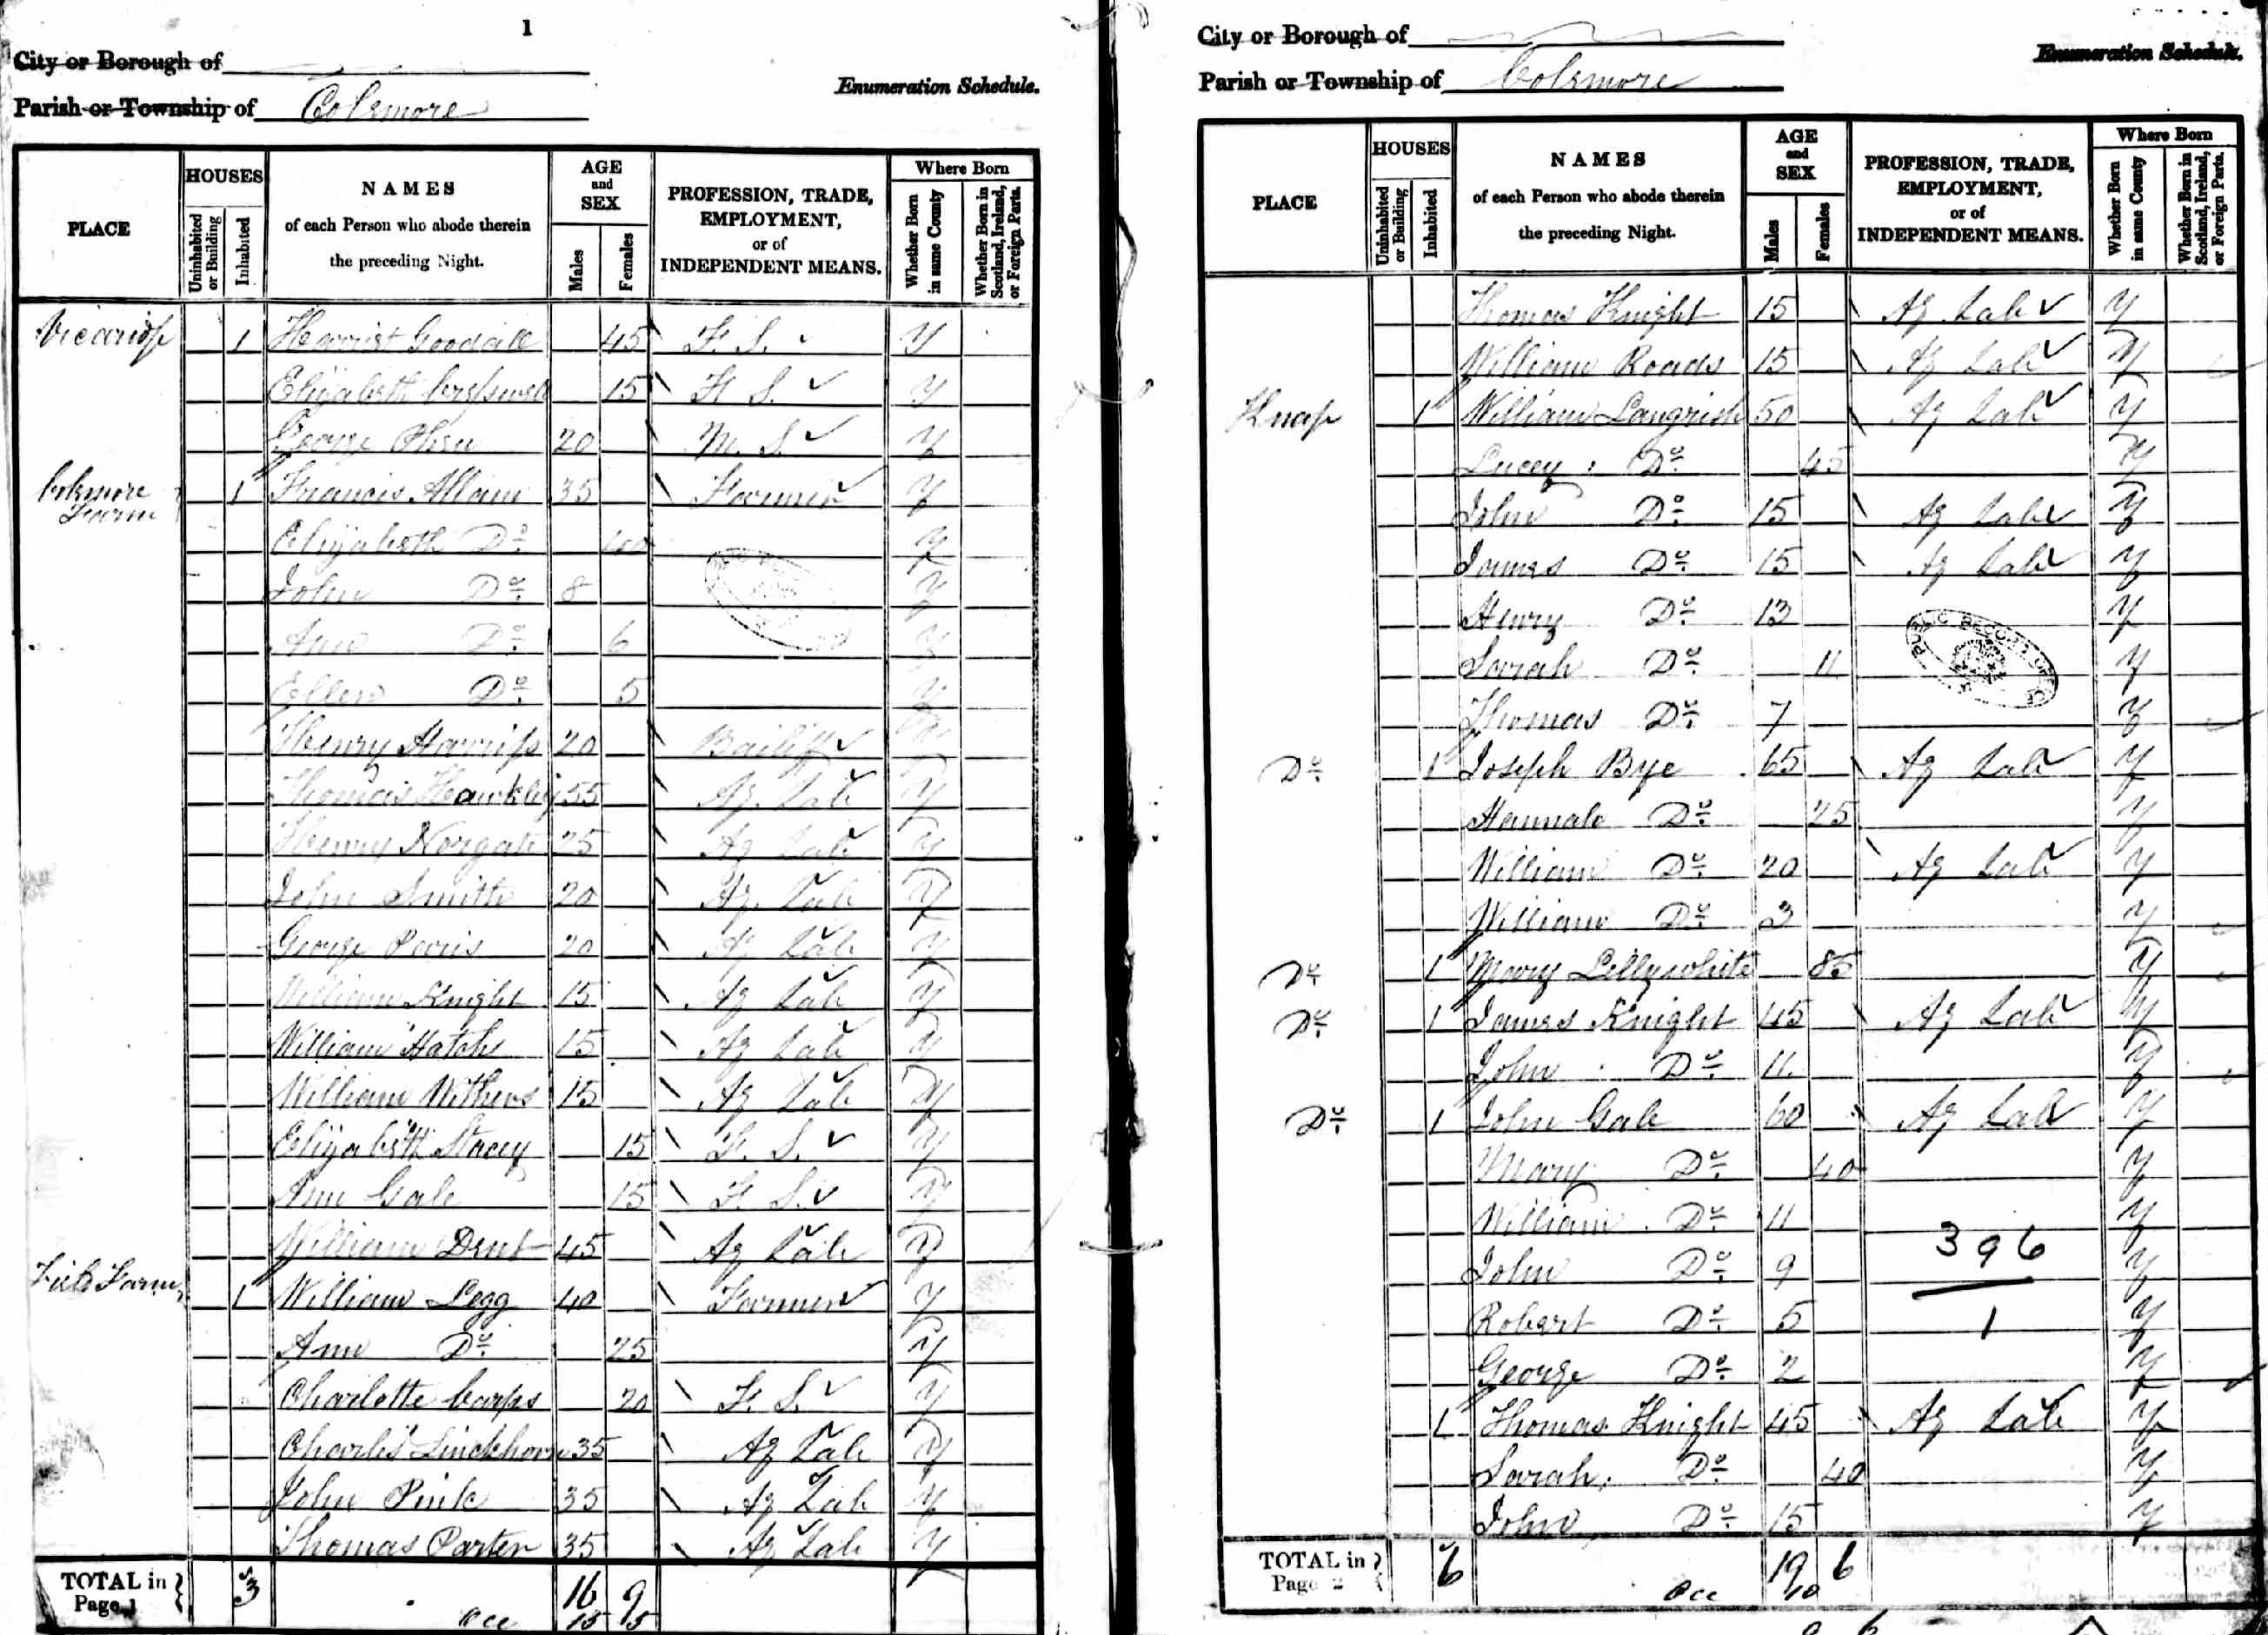 1
City or Borough of
Parish or Township of Colemore
Enumeration Schedule.
PLACE
HOUSES
Uninhabited or Building
Inhabited
NAMES
of each Person who abode therein
the preceding Night.
AGE and SEX
Males
Females
PROFESSION, TRADE, EMPLOYMENT, or of INDEPENDENT MEANS.
Where Born
Whether Born in same County
Whether Born in Scotland, Ireland, or Foreign Parts.
1 Harriet Goodall 45 F. S. Y
Elizabeth 15 F. S. Y
George 20 M. S. Y
Colemore Farm 1 Francis Allam 35 Farmer Y
Elizabeth Do. 40 Y
John Do. 8 Y
Ann Do. 6 Y
Ellen Do. 5 Y
Henry Harriss 20 Bailiff
Thomas 55 Ag. Lab Y
Henry Norgate 25 Ag Lab Y
John Smith 20 Ag. Lab Y
George 20 Ag Lab Y
William Knight 15 Ag Lab Y
William Hatch 15 Ag Lab Y
William Withers 15 Ag Lab Y
Elizabeth Stacey 15 F. S. Y
Ann Gale 15 F. S. Y
William Dent 45 Ag Lab Y
Farm 1 William Legg 40 Farmer Y
Ann Do. 25 Y
Charlotte 20 F. S. Y
Charles Linckhorn 35 Ag Lab Y
John Pink 35 Ag Lab Y
Thomas Parter 35 Ag Lab Y
TOTAL in Page 1 3 16 9
occ 15 5
City or Borough of
Parish or Township of Colemore
Enumeration Schedule.
PLACE
HOUSES
Uninhabited or Building
Inhabited
NAMES
of each Person who abode therein
the preceding Night.
AGE and SEX
Males
Females
PROFESSION, TRADE, EMPLOYMENT, or of INDEPENDENT MEANS.
Where Born
Whether Born in same County
Whether Born in Scotland, Ireland, or Foreign Parts.
Thomas Knight 15 Ag Lab Y
William Roads 15 Ag Lab Y
Knap 1 William Langrish 50 Ag Lab Y
Lucey Do. 45 Y
John Do. 15 Ag Lab Y
James Do. 15 Ag Lab Y
Henry Do. 13 Y
Sarah Do. 11 Y
Thomas Do. 7 Y
Do. 1 Joseph Bye 65 Ag Lab Y
Hannah Do. 25 Y
William Do. 20 Ag Lab Y
William Do. 3 Y
Do. 1 Mary Lillywhite 85 Y
Do. 1 James Knight 45 Ag Lab Y
John Do. 11 Y
Do. 1 John Gale 60 Ag Lab Y
Mary Do. 40 Y
William Do. 11 Y
John Do. 9 Y
Robert Do. 5 Y
George Do. 2 Y
1 Thomas Knight 45 Ag Lab Y
Sarah Do. 40 Y
John Do. 15 Y
PUBLIC RECORD OFFICE
396
1
TOTAL in Page 2 6 19 6
occ 10